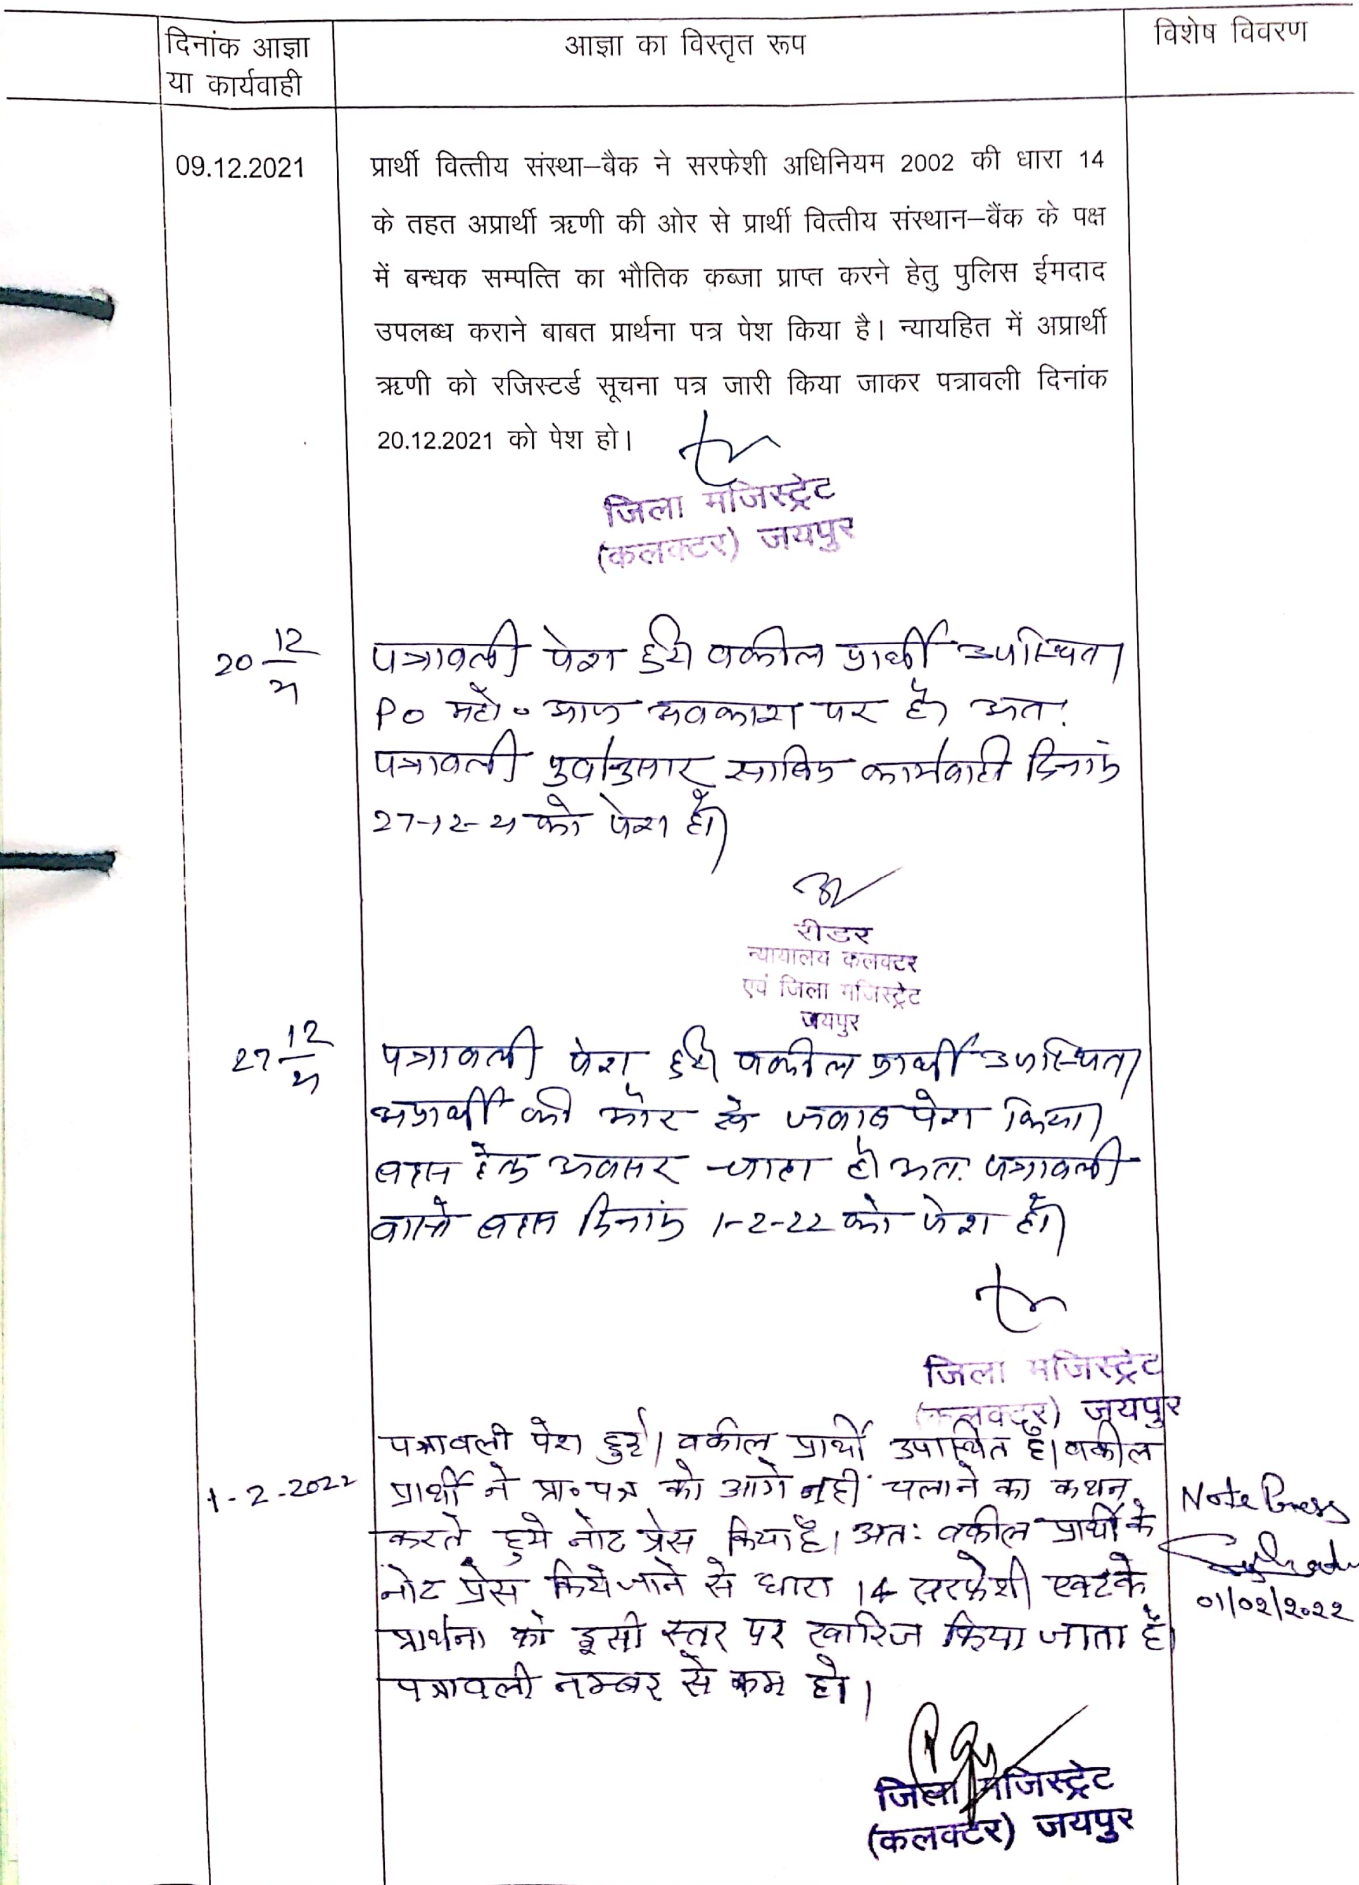 दिनांक आज्ञा
या कार्यवाही
आज्ञा का विस्तृत रूप
विशेष विवरण
09.12.2021
प्रार्थी वित्तीय संस्था–बैक ने सरफेशी अधिनियम 2002 की धारा 14
के तहत अप्रार्थी ऋणी की ओर से प्रार्थी वित्तीय संस्थान–बैंक के पक्ष
में बन्धक सम्पत्ति का भौतिक कब्जा प्राप्त करने हेतु पुलिस ईमदाद
उपलब्ध कराने बाबत प्रार्थना पत्र पेश किया है। न्यायहित में अप्रार्थी
ऋणी को रजिस्टर्ड सूचना पत्र जारी किया जाकर पत्रावली दिनांक
20.12.2021 को पेश हो।
जिला मजिस्ट्रेट
(कलक्टर) जयपुर
20 12/21
पत्रावली पेश हुयी वकील प्रार्थी उपस्थित।
PO महो० आज अवकाश पर है। अतः
पत्रावली पुर्वानुसार साबिक कार्यवाही दिनांक
27-12-21 को पेश हो।
रीडर
न्यायालय कलक्टर
एवं जिला मजिस्ट्रेट
जयपुर
27 12/21
पत्रावली पेश हुयी वकील प्रार्थी उपस्थित।
अप्रार्थी की ओर से जवाब पेश किया।
बहस हेतु अवसर चाहा है। अतः पत्रावली
वास्ते बहस दिनांक 1-2-22 को पेश हो।
जिला मजिस्ट्रेट
(कलक्टर) जयपुर
1-2-2022
पत्रावली पेश हुई। वकील प्रार्थी उपस्थित है। वकील
प्रार्थी ने प्रा०पत्र को आगे नहीं चलाने का कथन
करते हुये नोट प्रेस किया है। अतः वकील प्रार्थी के
नोट प्रेस किये जाने से धारा 14 सरफेशी एक्ट के
प्रार्थना को इसी स्तर पर खारिज किया जाता है।
पत्रावली नम्बर से कम हो।
Note Press
01/02/2022
जिला मजिस्ट्रेट
(कलक्टर) जयपुर